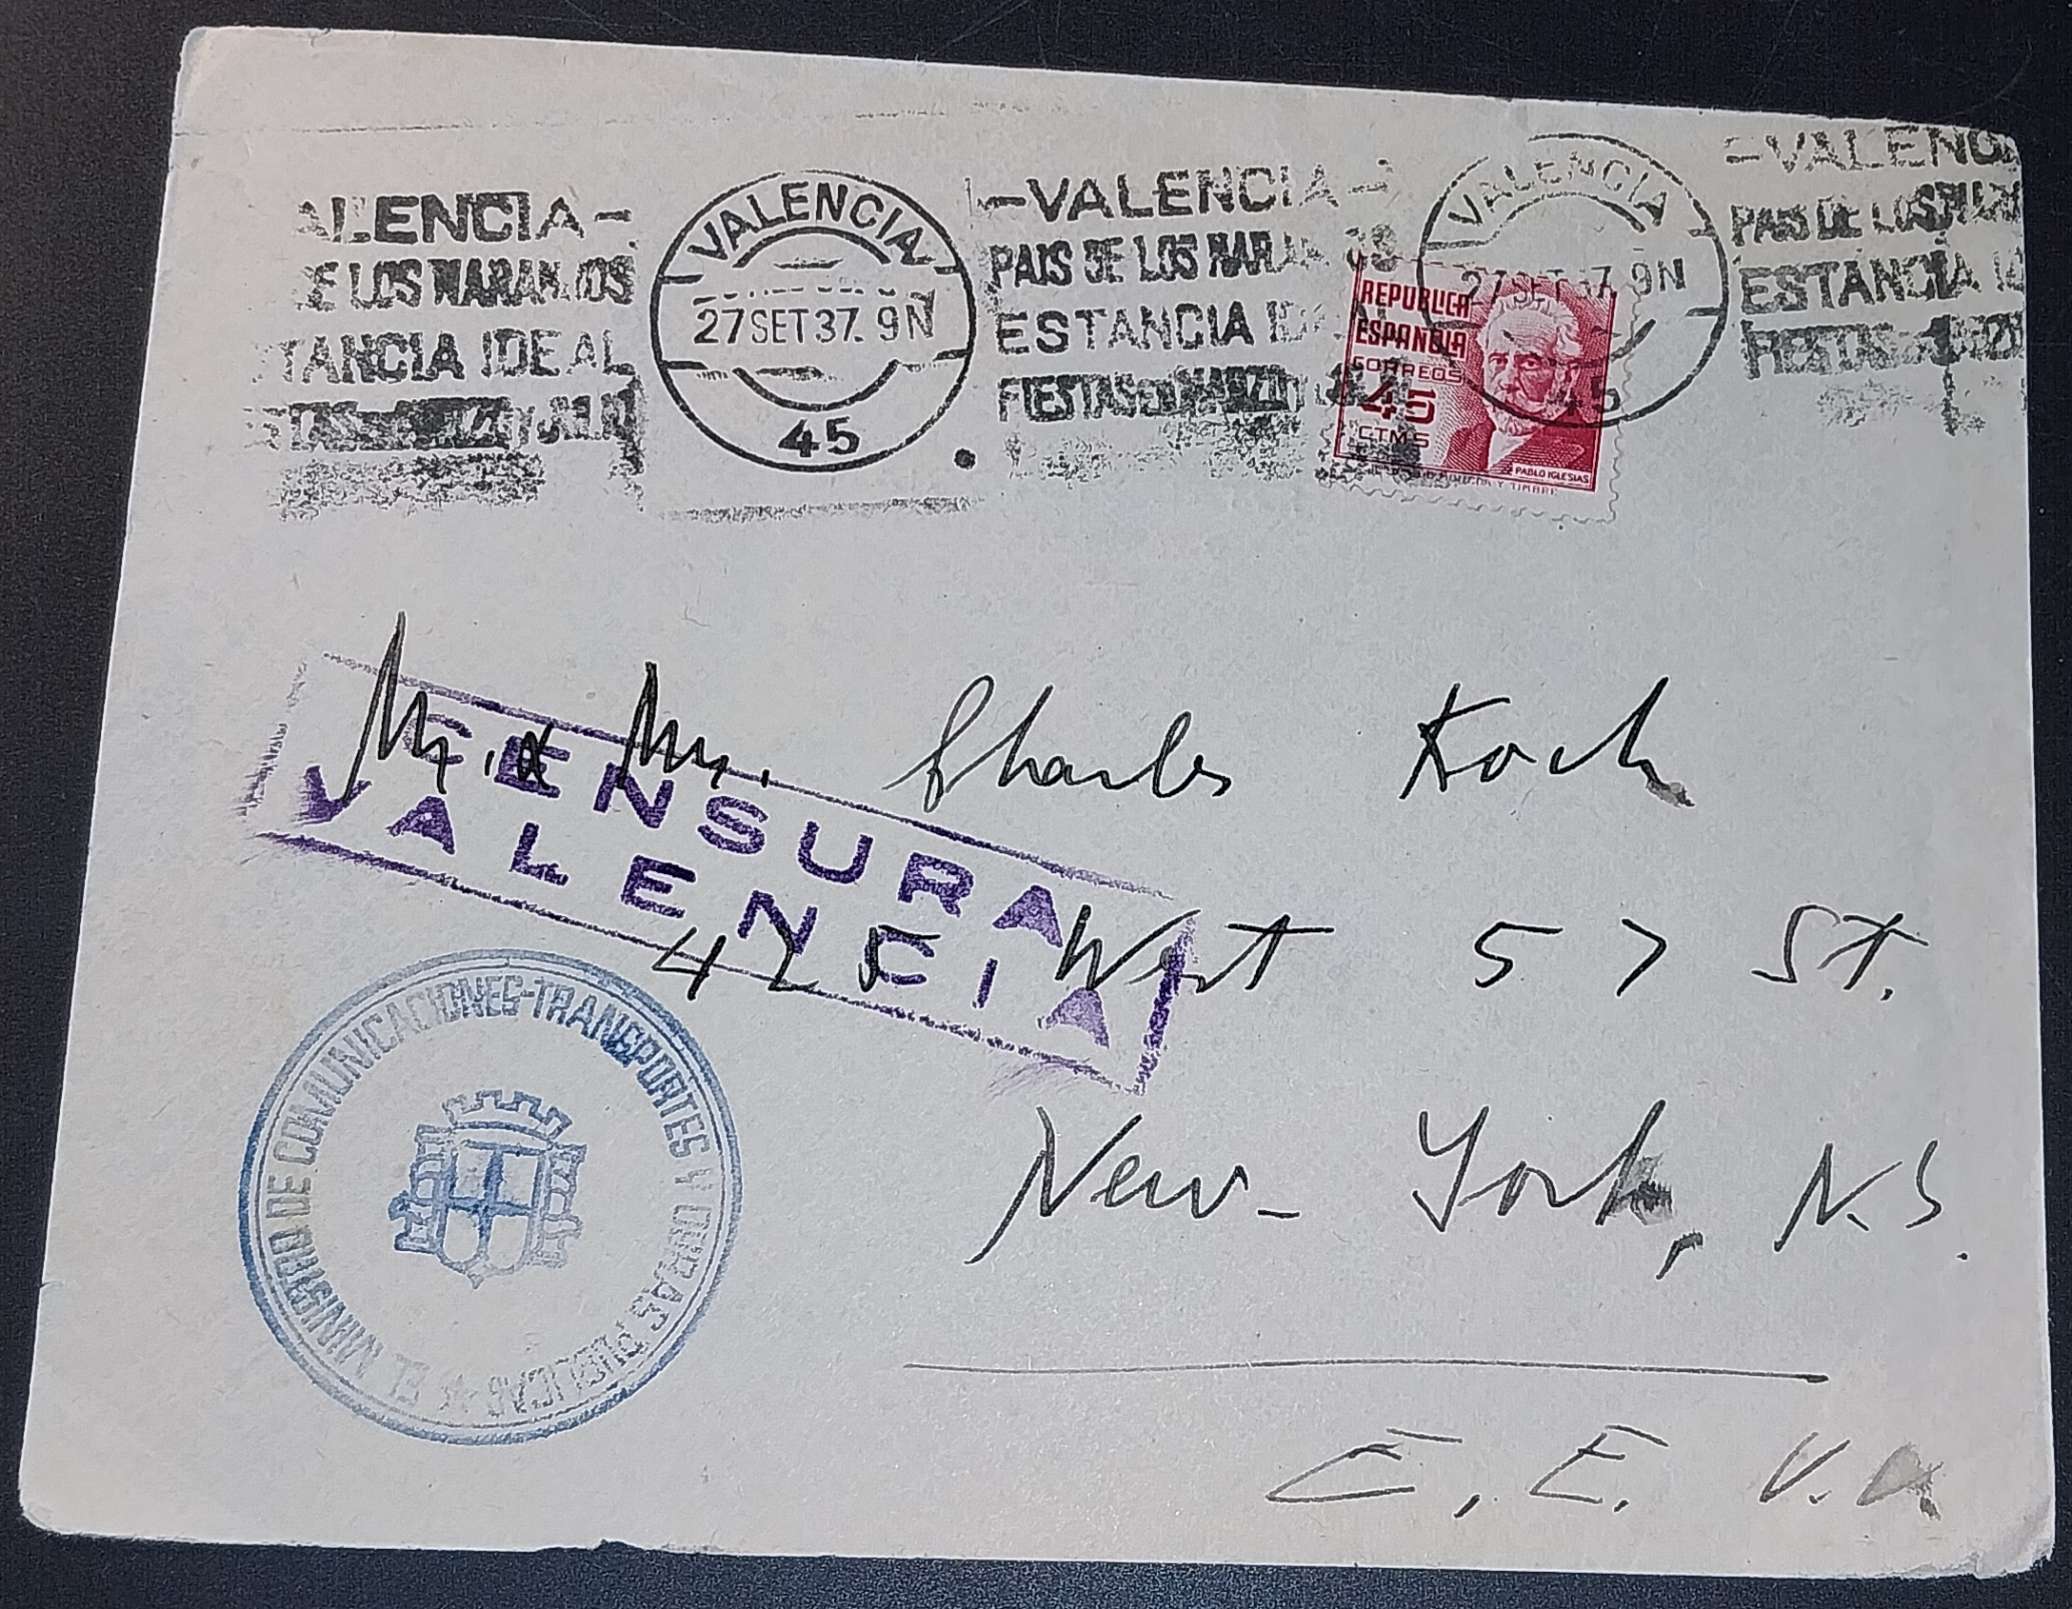 ALENCIA -
DE LOS NARANJOS
TANCIA IDEAL
TAS EN MARZO Y JULIO
VALENCIA
27 SET 37. 9N
45
- VALENCIA -
PAIS DE LOS NARANJOS
ESTANCIA IDEAL
FIESTAS EN MARZO Y JULIO
VALENCIA
27 SET 37. 9N
45
- VALENCIA
PAIS DE LOS NARAN
ESTANCIA ID
FIESTAS EN MARZO
REPUBLICA
ESPAÑOLA
CORREOS
45
CTMS
PABLO IGLESIAS
Charles Koch
CENSURA
VALENCIA
425 West 57 St.
New-York, N.Y.
EL MINISTRO DE COMUNICACIONES-TRANSPORTES Y OBRAS PUBLICAS ★
E.E.U.U.